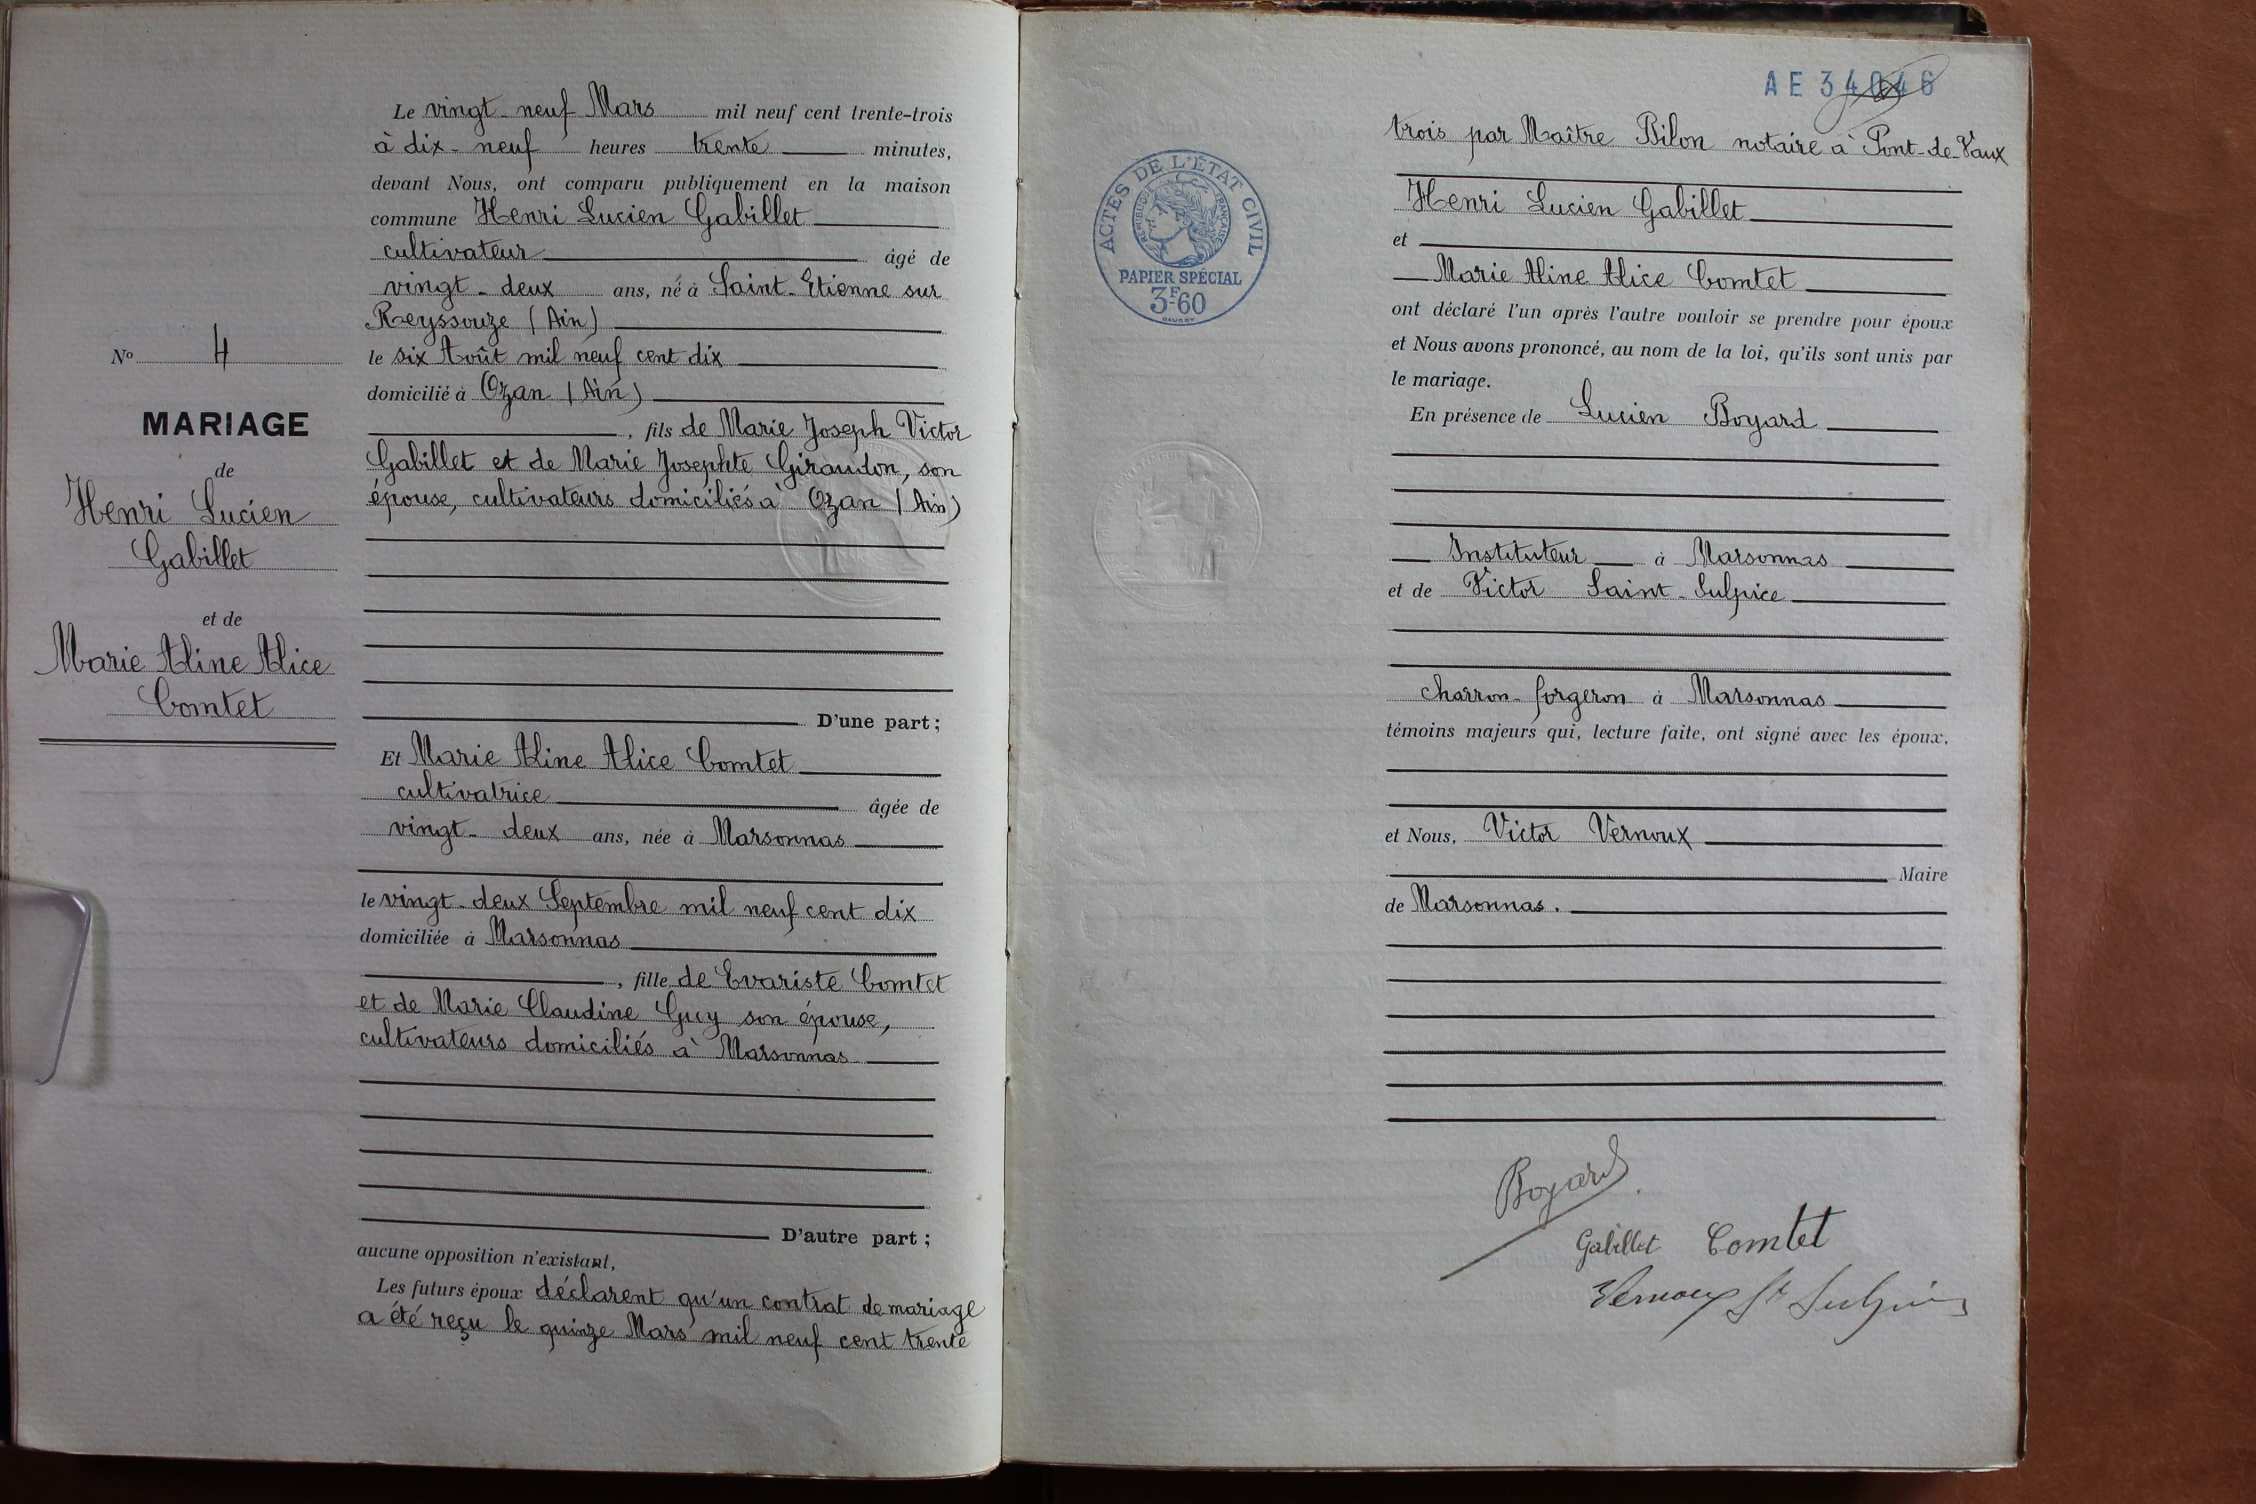 N° 4
MARIAGE
de
Henri Lucien
Gabillet
et de
Marie Aline Alice
Comtet
Le vingt-neuf Mars mil neuf cent trente-trois
à dix-neuf heures trente minutes,
devant Nous, ont comparu publiquement en la maison
commune Henri Lucien Gabillet
cultivateur âgé de
vingt-deux ans, né à Saint-Etienne sur
Reyssouze (Ain)
le six Août mil neuf cent dix
domicilié à Ozan (Ain)
, fils de Marie Joseph Victor
Gabillet et de Marie Josephte Giraudon, son
épouse, cultivateurs domiciliés à Ozan (Ain)
D'une part;
Et Marie Aline Alice Comtet
cultivatrice âgée de
vingt-deux ans, née à Marsonnas
le vingt-deux Septembre mil neuf cent dix
domiciliée à Marsonnas
, fille de Evariste Comtet
et de Marie Claudine Guy son épouse,
cultivateurs domiciliés à Marsonnas
D'autre part;
aucune opposition n'existant,
Les futurs époux déclarent qu'un contrat de mariage
a été reçu le quinze Mars mil neuf cent trente
AE 34046
ACTES DE L'ÉTAT CIVIL
RÉPUBLIQUE FRANÇAISE
PAPIER SPÉCIAL
3F60
trois par Maître Bilon notaire à Pont-de-Vaux
Henri Lucien Gabillet
et
Marie Aline Alice Comtet
ont déclaré l'un après l'autre vouloir se prendre pour époux
et Nous avons prononcé, au nom de la loi, qu'ils sont unis par
le mariage.
En présence de Lucien Boyard
Instituteur à Marsonnas
et de Victor Saint-Sulpice
charron-forgeron à Marsonnas
témoins majeurs qui, lecture faite, ont signé avec les époux,
et Nous, Victor Vernoux
Maire
de Marsonnas.
Boyard
Gabillet Comtet
Vernoux St Sulpice